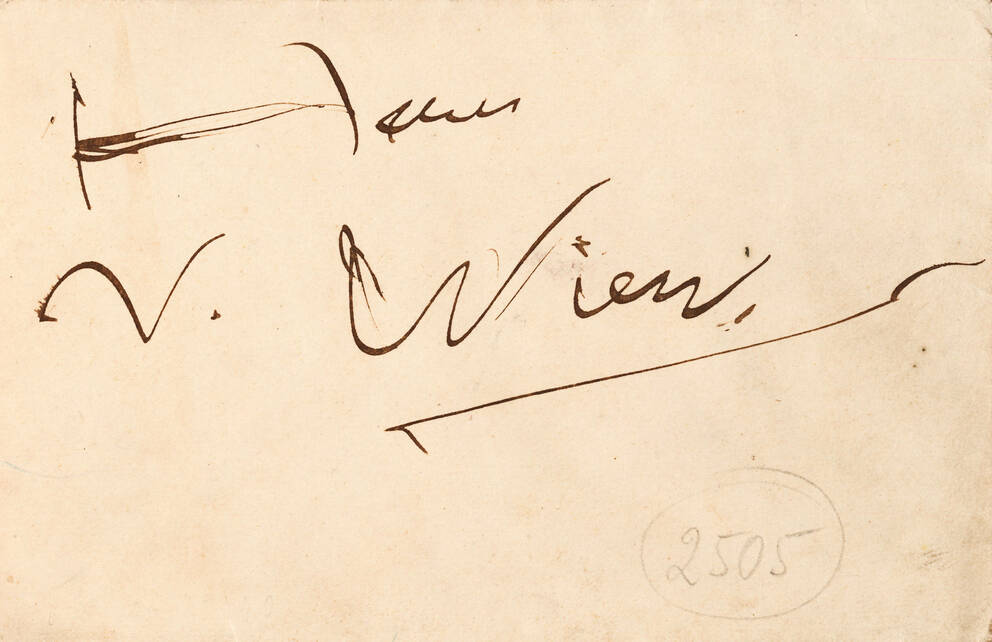 Herrn
v. Wien.
2505